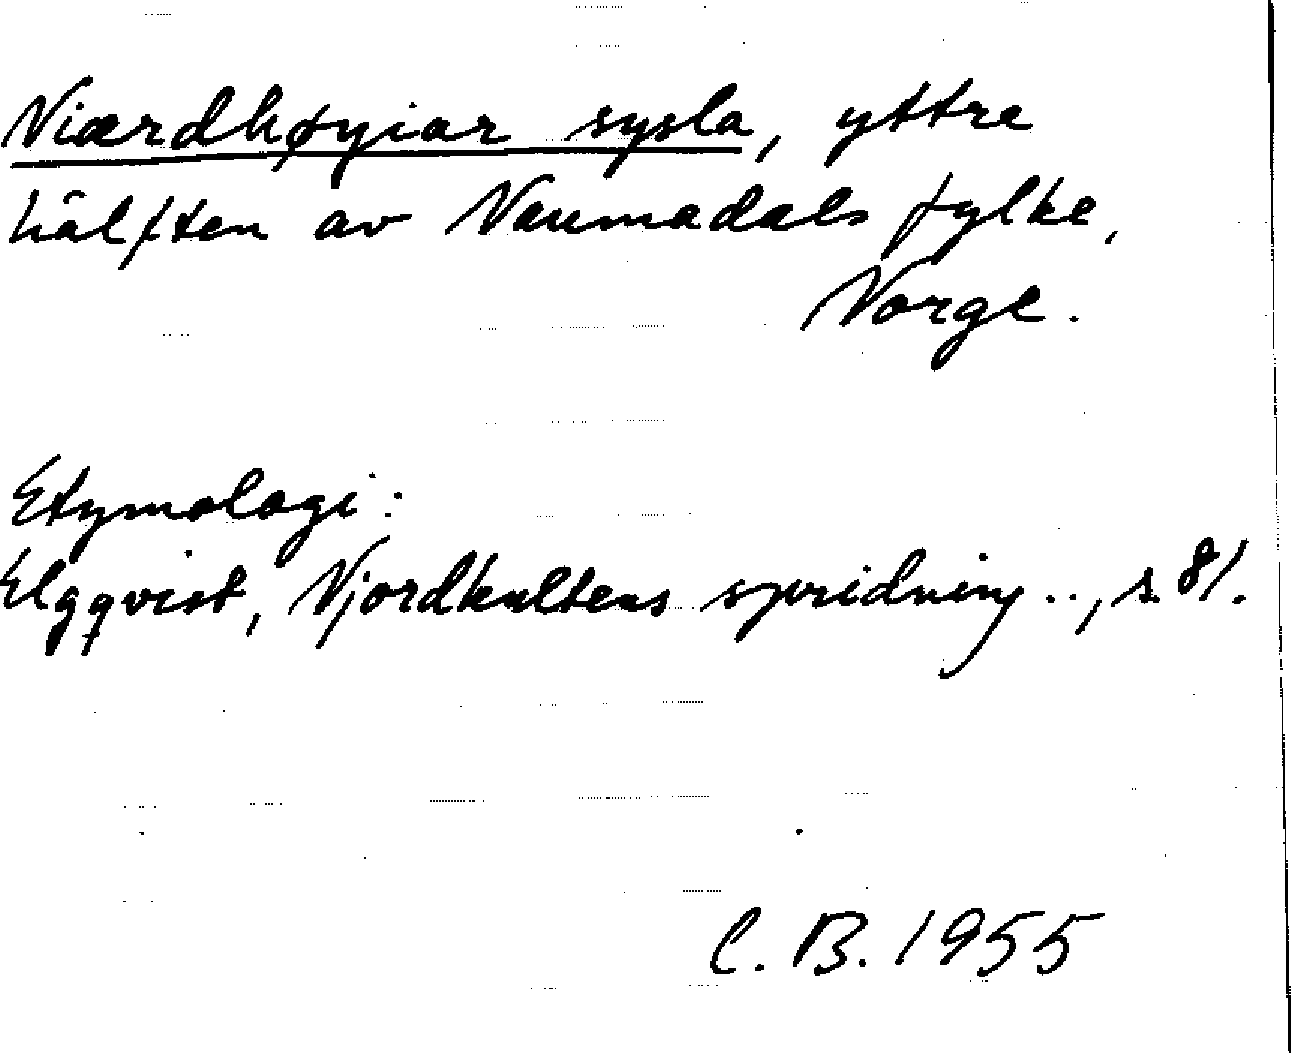 Niærdhøyiar sysla, yttre
hälften av Naumadals fylke,
Norge.
Etymologi:
Elgqvist, Njordkultens spridning .., s. 81.
C. B. 1955